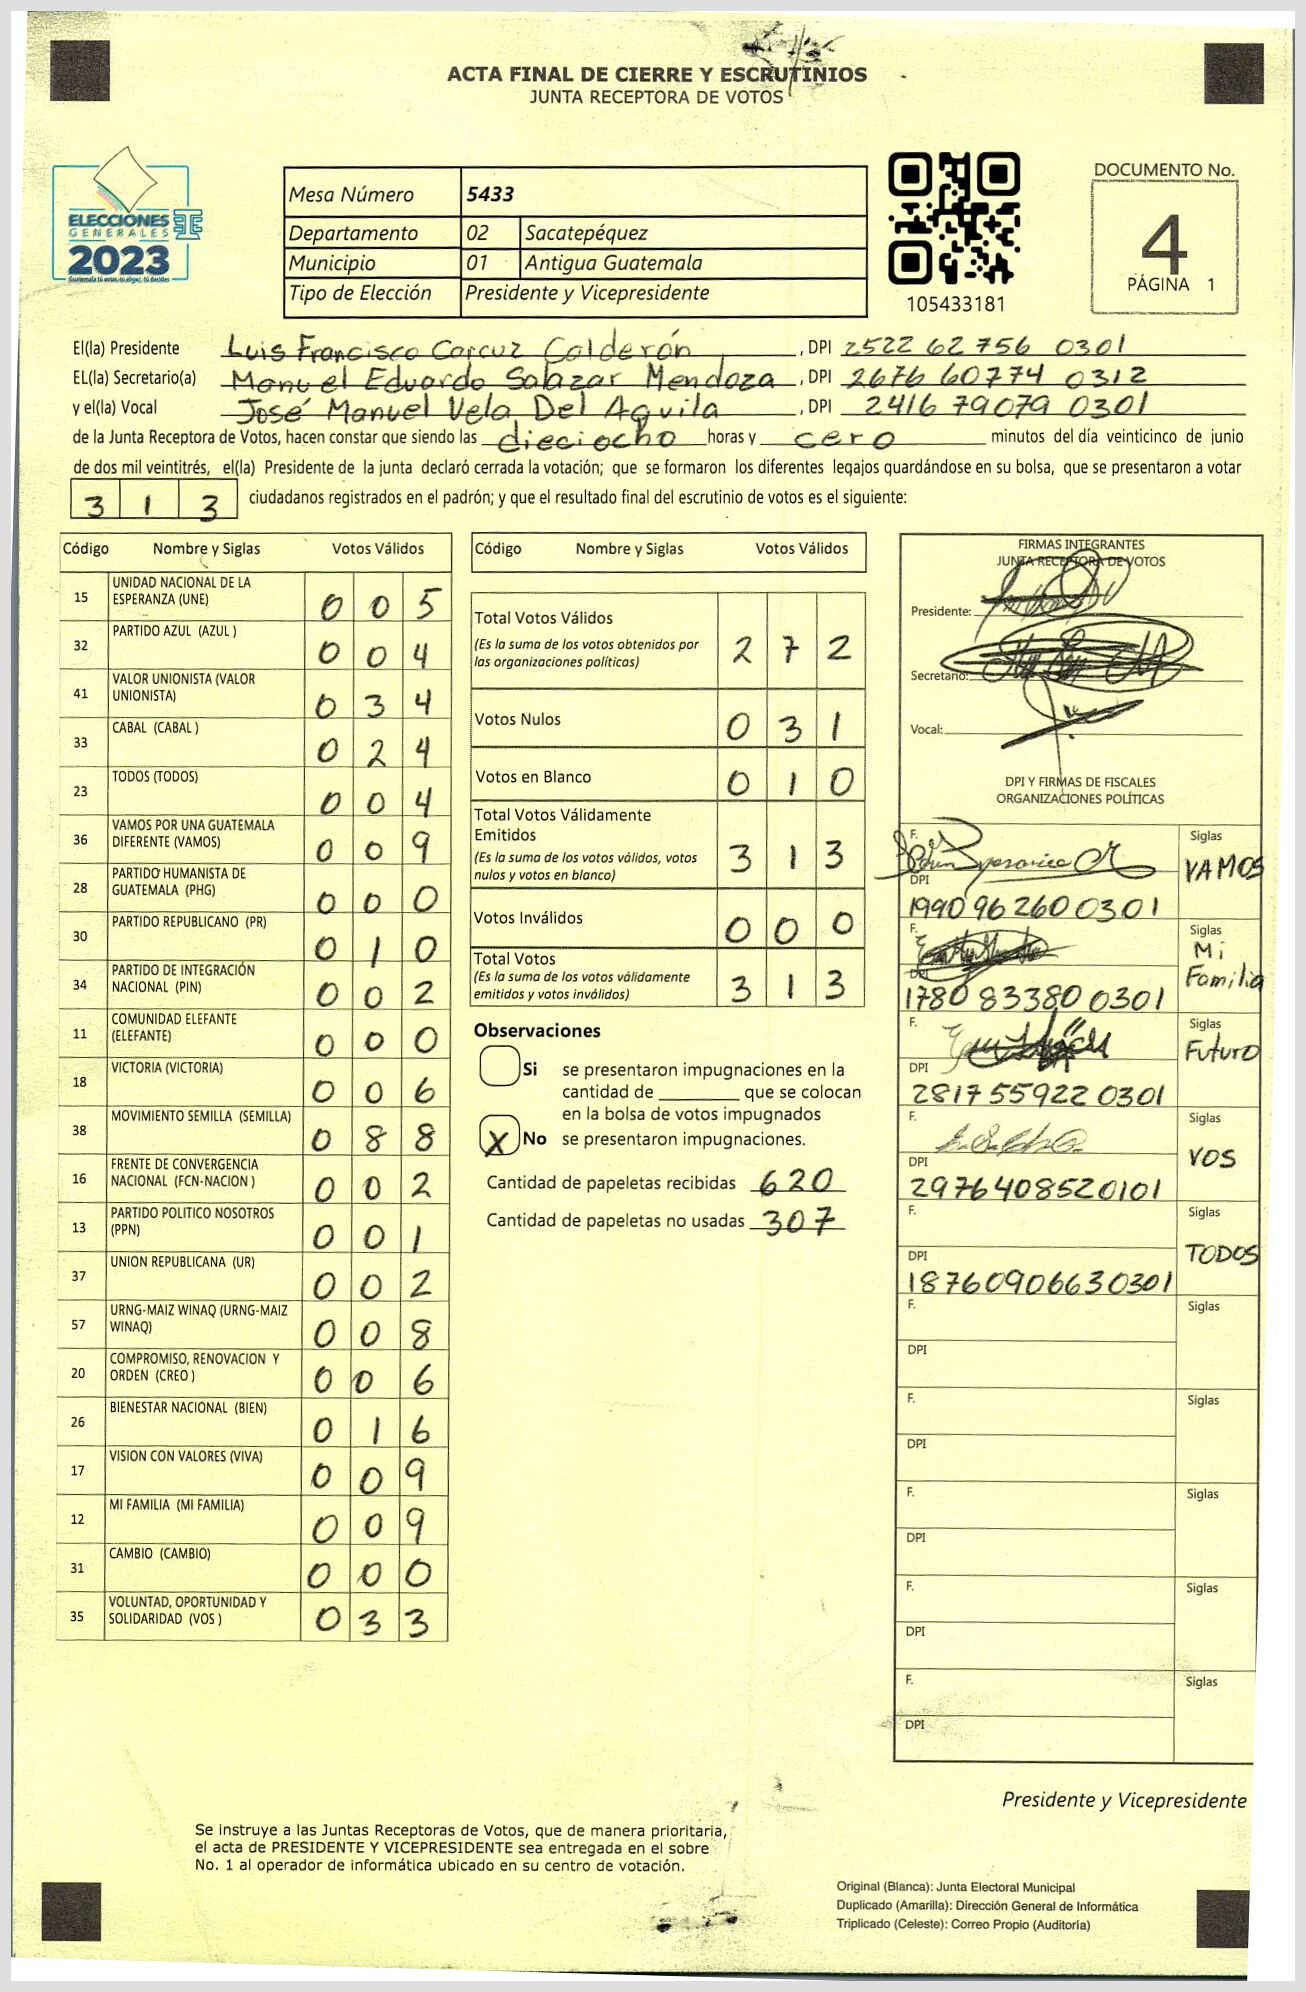 ACTA FINAL DE CIERRE Y ESCRUTINIOS
JUNTA RECEPTORA DE VOTOS
ELECCIONES
GENERALES
2023
Mesa Número 5433
Departamento 02 Sacatepéquez
Municipio 01 Antigua Guatemala
Tipo de Elección Presidente y Vicepresidente
105433181
DOCUMENTO No.
4
PÁGINA 1
El(la) Presidente Luis Francisco Carcuz Calderón, DPI 2522 62756 0301
EL(la) Secretario(a) Manuel Eduardo Salazar Mendoza, DPI 2676 60774 0312
y el(la) Vocal José Manuel Vela Del Aguila, DPI 2416 79079 0301
de la Junta Receptora de Votos, hacen constar que siendo las dieciocho horas y cero minutos del día veinticinco de junio
de dos mil veintitrés, el(la) Presidente de la junta declaró cerrada la votación; que se formaron los diferentes legajos guardándose en su bolsa, que se presentaron a votar
3 1 3 ciudadanos registrados en el padrón; y que el resultado final del escrutinio de votos es el siguiente:
Código Nombre y Siglas Votos Válidos
15 UNIDAD NACIONAL DE LA ESPERANZA (UNE) 0 0 5
32 PARTIDO AZUL (AZUL ) 0 0 4
41 VALOR UNIONISTA (VALOR UNIONISTA) 0 3 4
33 CABAL (CABAL ) 0 2 4
23 TODOS (TODOS) 0 0 4
36 VAMOS POR UNA GUATEMALA DIFERENTE (VAMOS) 0 0 9
28 PARTIDO HUMANISTA DE GUATEMALA (PHG) 0 0 0
30 PARTIDO REPUBLICANO (PR) 0 1 0
34 PARTIDO DE INTEGRACIÓN NACIONAL (PIN) 0 0 2
11 COMUNIDAD ELEFANTE (ELEFANTE) 0 0 0
18 VICTORIA (VICTORIA) 0 0 6
38 MOVIMIENTO SEMILLA (SEMILLA) 0 8 8
16 FRENTE DE CONVERGENCIA NACIONAL (FCN-NACION ) 0 0 2
13 PARTIDO POLITICO NOSOTROS (PPN) 0 0 1
37 UNION REPUBLICANA (UR) 0 0 2
57 URNG-MAIZ WINAQ (URNG-MAIZ WINAQ) 0 0 8
20 COMPROMISO, RENOVACION Y ORDEN (CREO ) 0 0 6
26 BIENESTAR NACIONAL (BIEN) 0 1 6
17 VISION CON VALORES (VIVA) 0 0 9
12 MI FAMILIA (MI FAMILIA) 0 0 9
31 CAMBIO (CAMBIO) 0 0 0
35 VOLUNTAD, OPORTUNIDAD Y SOLIDARIDAD (VOS ) 0 3 3
Código Nombre y Siglas Votos Válidos
Total Votos Válidos
(Es la suma de los votos obtenidos por
las organizaciones políticas) 2 7 2
Votos Nulos 0 3 1
Votos en Blanco 0 1 0
Total Votos Válidamente
Emitidos
(Es la suma de los votos válidos, votos
nulos y votos en blanco) 3 1 3
Votos Inválidos 0 0 0
Total Votos
(Es la suma de los votos válidamente
emitidos y votos inválidos) 3 1 3
Observaciones
Si se presentaron impugnaciones en la
cantidad de ________ que se colocan
en la bolsa de votos impugnados
X No se presentaron impugnaciones.
Cantidad de papeletas recibidas 620
Cantidad de papeletas no usadas 307
FIRMAS INTEGRANTES
JUNTA RECEPTORA DE VOTOS
Presidente:
Secretario:
Vocal:
DPI Y FIRMAS DE FISCALES
ORGANIZACIONES POLÍTICAS
F. Siglas
VAMOS
DPI
1990 96260 0301
F. Siglas
Mi
Familia
DPI
1780 83380 0301
F. Siglas
Futuro
DPI
2817 55922 0301
F. Siglas
VOS
DPI
2976408520101
F. Siglas
TODOS
DPI
18760906630301
F. Siglas
DPI
F. Siglas
DPI
F. Siglas
DPI
F. Siglas
DPI
F. Siglas
DPI
Presidente y Vicepresidente
Se instruye a las Juntas Receptoras de Votos, que de manera prioritaria,
el acta de PRESIDENTE Y VICEPRESIDENTE sea entregada en el sobre
No. 1 al operador de informática ubicado en su centro de votación.
Original (Blanca): Junta Electoral Municipal
Duplicado (Amarilla): Dirección General de Informática
Triplicado (Celeste): Correo Propio (Auditoría)